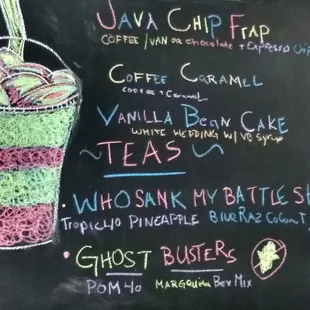 JAVA CHIP FRAP
COFFEE / VAN OR CHOCOLATE + ESPRESSO CHIP
COFFEE CARAMEL
COFFEE + CARAMEL
VANILLA BEAN CAKE
WHITE WEDDING W/ VB SYRUP
~TEAS~
• WHO SANK MY BATTLE SH
TROPIC 40 PINEAPPLE BLUERAZ COCONUT
• GHOST BUSTERS
POM 40 MARGARITA BEV MIX